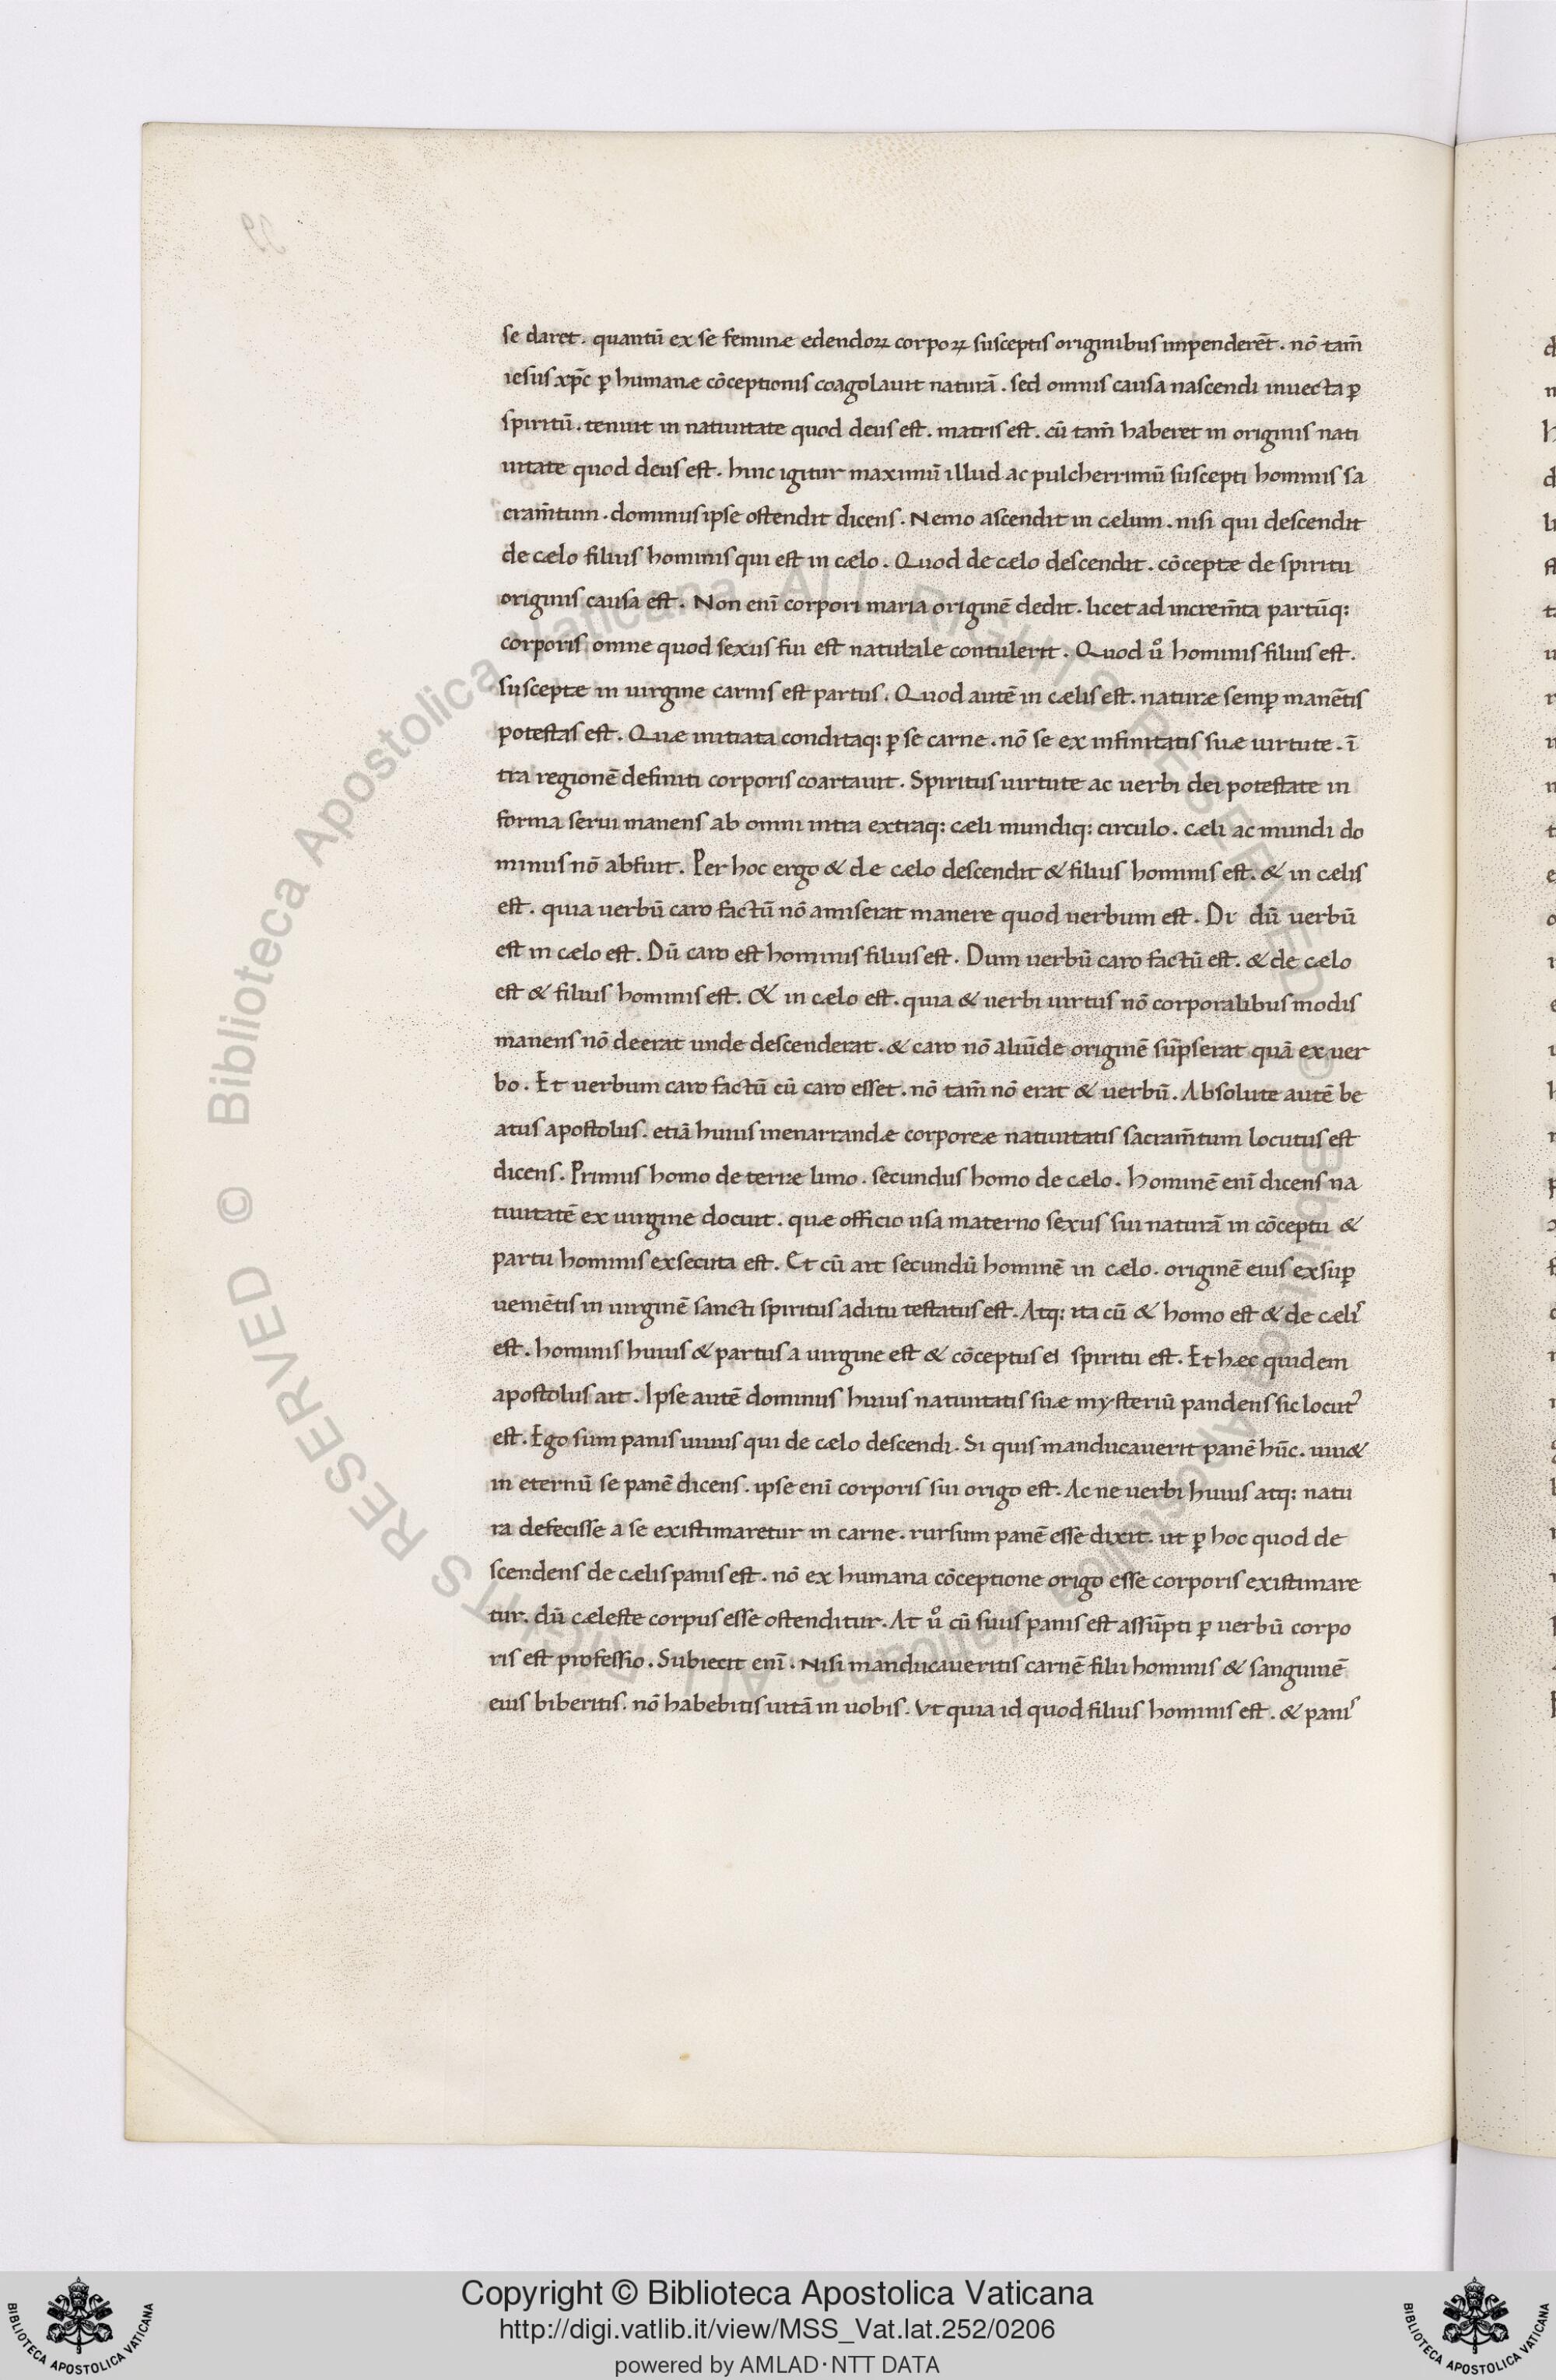 se daret. quantū ex se feminæ edendoꝝ corpoꝝ susceptis originibus impenderēt. nō tam̄
iesus xp̄c ꝑ humanæ cōceptionis coagolauit naturā. sed omnis causa nascendi inuecta ꝑ
spiritū. tenuit in natiuitate quod deus est. matris est. cū tam̄ haberet in originis nati
uitate quod deus est. hinc igitur maximū illud ac pulcherrimū suscepti hominis sa
cram̄tum. dominus ipse ostendit dicens. Nemo ascendit in cælum. nisi qui descendit
de cælo filius hominis qui est in cælo. Quod de cælo descendit. cōceptæ de spiritu
originis causa est. Non enī corpori maria originē dedit. licet ad increm̄ta partūq:
corporis omne quod sexus sui est naturale contulerit. Quod uͦ hominis filius est.
susceptæ in uirgine carnis est partus. Quod autē in cælis est. naturæ semꝑ manētis
potestas est. Quæ initiata conditaq: ꝑ se carne. nō se ex infinitatis suæ uirtute. ī
tra regionē definiti corporis coartauit. Spiritus uirtute ac uerbi dei potestate in
forma serui manens ab omni intra extraq: cæli mundiq: circulo. cæli ac mundi do
minus nō abfuit. Per hoc ergo & de cælo descendit & filius hominis est. & in cælis
est. quia uerbū caro factū nō amiserat manere quod uerbum est. Di dū uerbū
est in cælo est. Dū caro est hominis filius est. Dum uerbū caro factū est. & de cælo
est & filius hominis est. & in cælo est. quia & uerbi uirtus nō corporalibus modis
manens nō deerat unde descenderat. & caro nō aliūde originē sūpserat quā ex uer
bo. Et uerbum caro factū cū caro esset. nō tam̄ nō erat & uerbū. Absolute autē be
atus apostolus. etiā huius inenarrandæ corporeæ natiuitatis sacram̄tum locutus est
dicens. Primus homo de terræ limo. secundus homo de cælo. Hominē enī dicens na
tiuitatē ex uirgine docuit. quæ officio usa materno sexus sui naturā in cōceptu &
partu hominis exsecuta est. Et cū ait secundū hominē in cælo. originē eius ex suꝑ
ueniētis in uirginē sancti spiritus aditu testatus est. Atq: ita cū & homo est & de cælis
est. hominis huius & partus a uirgine est & cōceptus ei spiritu est. Et hæc quidem
apostolus ait. Ipse autē dominus huius natiuitatis suæ mysteriū pandens sic locut᾿
est. Ego sum panis uiuus qui de cælo descendi. Si quis manducauerit panē hūc. uiu&
in eternū se panē dicens. ipse enī corporis sui origo est. Ac ne uerbi huius atq: natu
ra defecisse a se existimaretur in carne. rursum panē esse dixit. ut ꝑ hoc quod de
scendens de cælis panis est. nō ex humana cōceptione origo esse corporis existimare
tur. dū cæleste corpus esse ostenditur. At uͦ cū suus panis est assūpti ꝑ uerbū corpo
ris est professio. Subiecit enī. Nisi manducaueritis carnē filii hominis & sanguinē
eius biberitis. nō habebitis uitā in uobis. Vt quia id quod filius hominis est. & panis
Copyright © Biblioteca Apostolica Vaticana
http://digi.vatlib.it/view/MSS_Vat.lat.252/0206
powered by AMLAD·NTT DATA
BIBLIOTECA APOSTOLICA VATICANA
BIBLIOTECA APOSTOLICA VATICANA